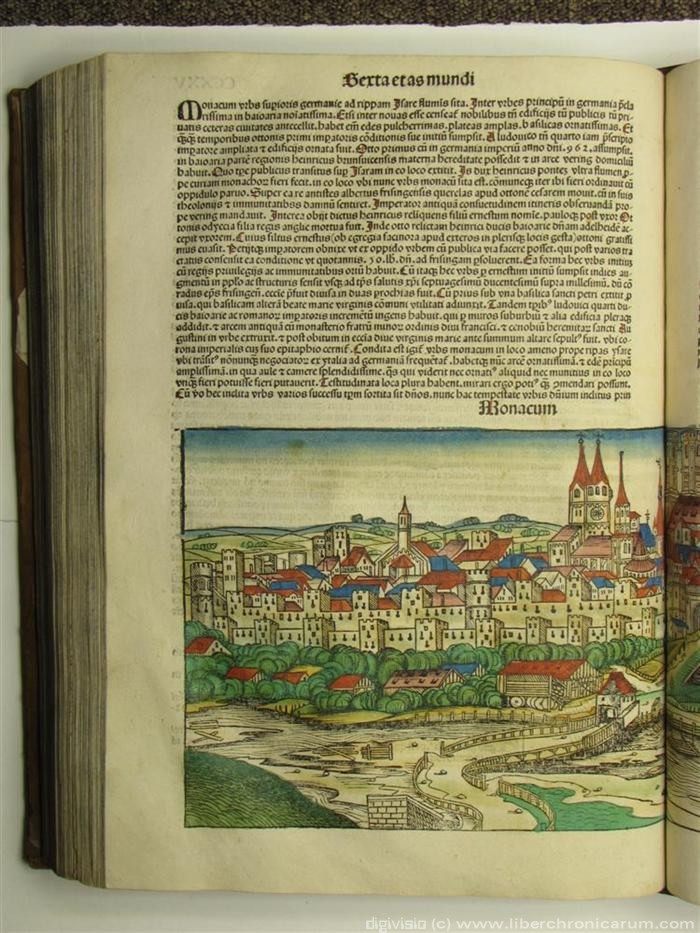 Sexta etas mundi
Monacum vrbs supioris germanie ad rippam Isare flumis sita. Inter vrbes principũ in germania p̃cla
rissima in baioaria noĩatissima. Etsi inter nouas esse censeat nobilibus tñ edificijs tũ publicis tũ pri
uatis ceteras ciuitates antecellit. habet em̃ edes pulcherrimas, plateas amplas, basilicas ornatissimas. Et
temporibus ottonis primi impatoris cõditionis sue initiũ sumpsit. A ludouico tñ quarto iam p̃scripto
impatore ampliata ⁊ edificijs ornata fuit. Otto primus cũ in germania imperiũ anno dñi. 962. assumpsit.
in baioaria parte regionis heinricus brunsuicensis materna hereditate possedit ⁊ in arce vering domiciliũ
habuit. Quo tpe publicus transitus sup Isaram in eo loco extitit. Is dux heinricus pontez vltra flumen p
pe curiam monachor fieri fecit. in eo loco vbi nunc vrbs monacũ sita est. iter ibi fieri ordinauit cũ
oppidulo paruo. Super ea re antistes albertus frisingensis querelas apud ottonẽ cesarem mouit. cũ in suis
theolonijs ⁊ immunitatibus damnũ sentiret. Imperator antiquã consuetudinem itineris obseruandã pro
pe vering mandauit. Interea obijt ductus heinricus reliquens filiũ ernestum noĩe. vxor Ot
tonis odyccia filia regis anglie mortua fuit. Inde otto relictam heinrici ducis baioarie dñam adelheidẽ ac
cepit vxorem. Cuius filius ernestus (ob egregia facinora apud exteros in plerisq locis gesta) ottoni gratissi
mus euasit. impatorem obnixe vt ex oppido vrbem cũ publica via facere posset. qui post varios tra
ctatus consensit ea conditione vt quotannis. 30. lb. dñ. ad frisingam psoluerent. Ea forma hec vrbs initiuz
cũ regijs priuilegijs ac immunitatibus ortũ habuit. Cũ itaq hec vrbs p ernestum initiũ sumpsit indies au
gmentũ in pplo ac structuris sensit vsq ad salutis septuagesimũ ducentesimũ supra millesimũ. dũ cõ
radus eps frisingeñ. eccie pfuit diuisa in duas prochias fuit. Cũ prius sub vna basilica sancti petri extitit p
uisa. qui basilicam alterã beate marie virginis cõmuni vtilitati adiunxit. Tandem ludouici quarti du
cis baioarie ac romanor impatoris incremẽtũ ingens habuit. qui p muros suburbiũ ⁊ alia edificia pleraq
addidit. ⁊ arcem antiquã cũ monasterio fratrũ minor ordinis diui francisci. ⁊ cenobiũ heremitar sancti Au
gustini in vrbe extruxit. ⁊ post obitum in eccia diue virginis marie ante summum altare sepult fuit. vbi co-
rona imperialis cuz suo epitaphio cernit. Condita est igit vrbs monacum in loco ameno prope ripas ysare
vbi trãsit negociator ex ytalia ad germaniã frequẽtat. nũc arcẽ ornatissimã. ⁊ ede principũ
amplissimã. in qua aule ⁊ camere splendidissime. qs qui viderit nec ornati aliquid nec munitius in eo loco
fieri potuisse fieri putauerit. Testitudinata loca plura habent. mirari ergo poti q cõmendari possunt.
Cũ vo hec inclita vrbs varios successu tpm sortita sit dños. nunc hac tempestate vrbis dñium inclitus prin
Monacum
digivisio (c) www.liberchronicarum.com